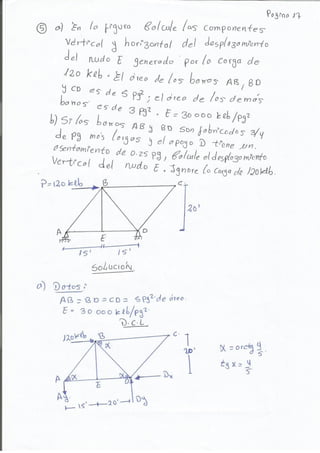 Pagina 17
⑤ a) En la figura Calcule las componentes
vertical y horizontal del desplazamiento
del nudo E generado por la carga de
120 klb. El área de las barras AB, BD
y CD es de 5 pg²; el área de las demás
barras es de 3 pg². E = 30 000 klb/pg²
b) Si las barras AB y BD son fabricadas 3/4
de pg más largas y el apoyo D tiene un
asentamiento de 0.25 pg, Calcule el desplazamiento
vertical del nudo E. Ignore la carga de 120klb.
P=120 klb
B
C
20'
A
E
D
15'
15'
SOLUCIÓN
a) Datos:
AB = BD = CD = 5 pg² de área
E = 30.000 klb/pg²
D.C.L
120klb
B
C
α
20'
α = arctg 4/3
tg α = 4/3
A
α
α
D
Dx
E
Ay
Dy
15'
20'